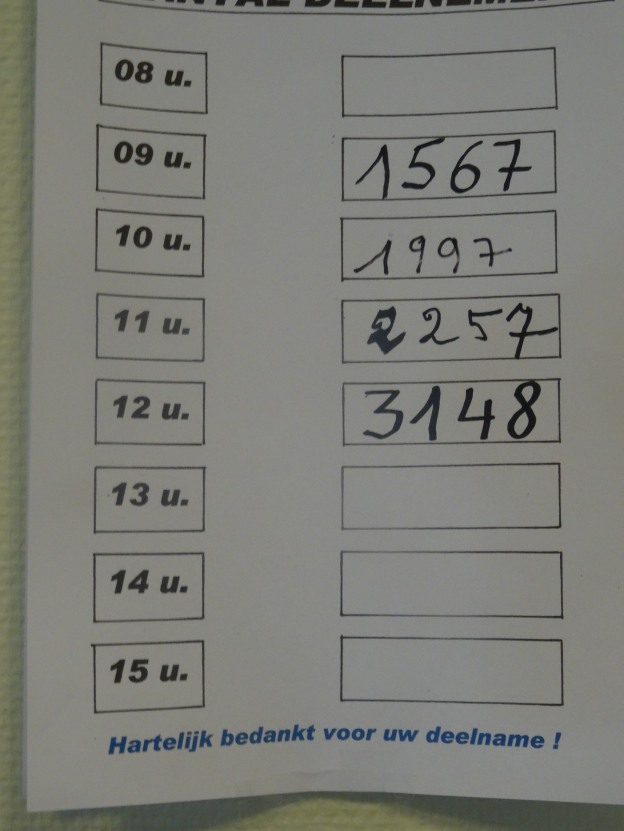 08 u.
09 u. 1567
10 u. 1997
11 u. 2257
12 u. 3148
13 u.
14 u.
15 u.
Hartelijk bedankt voor uw deelname !